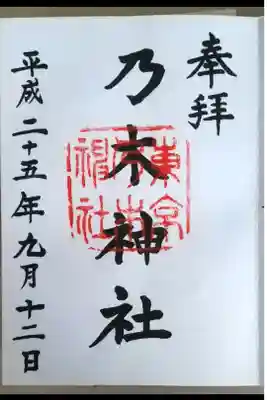 奉拝
乃木神社
東京乃木神社
平成二十五年九月十二日